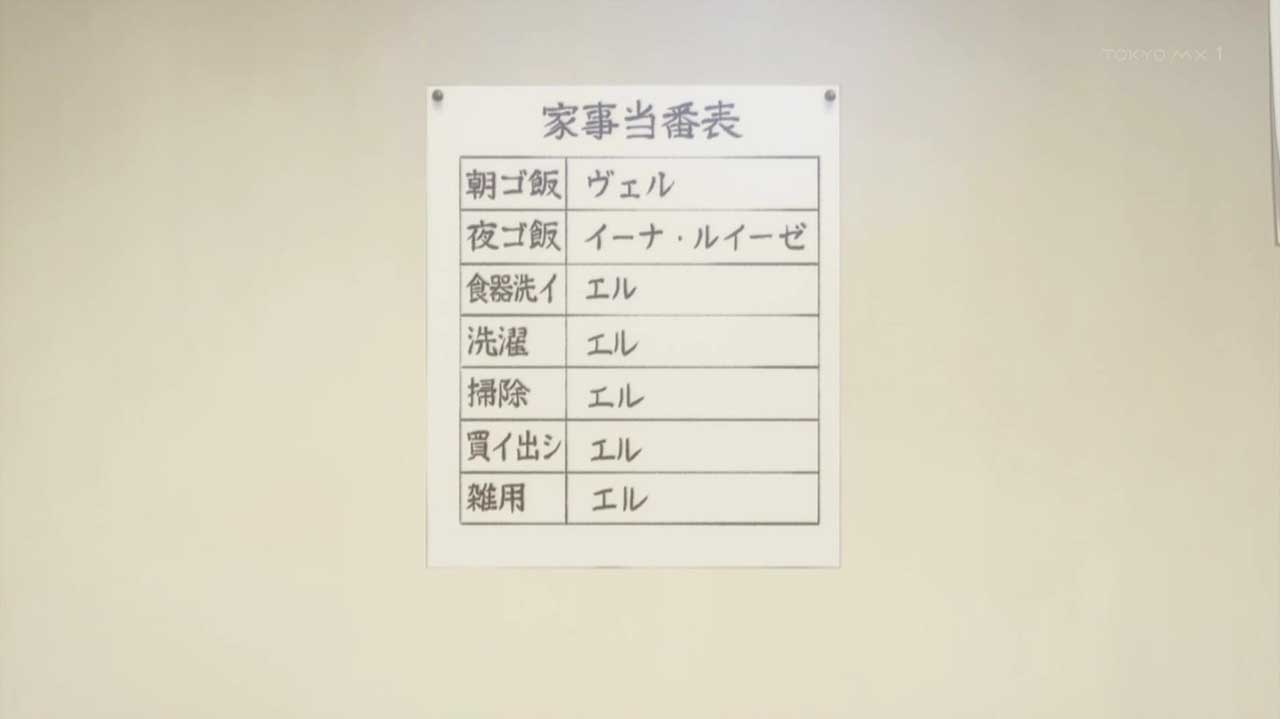 TOKYO MX 1
家事当番表
朝ゴ飯 ヴェル
夜ゴ飯 イーナ・ルイーゼ
食器洗イ エル
洗濯 エル
掃除 エル
買イ出シ エル
雑用 エル